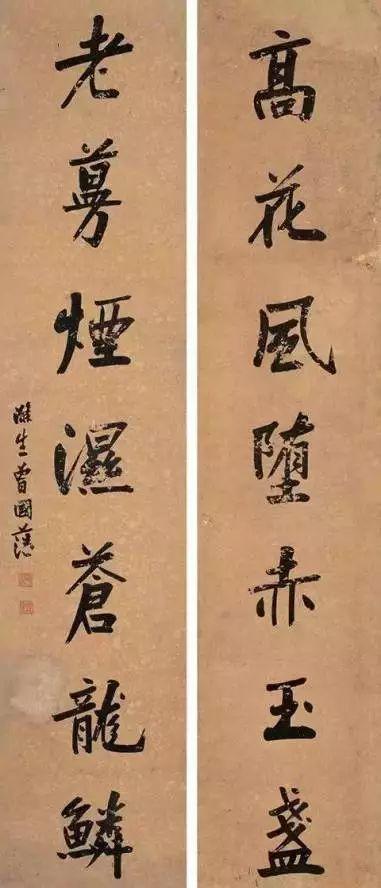 髙花風墮赤玉盞
老蔓煙濕蒼龍鱗
滌生曾國藩